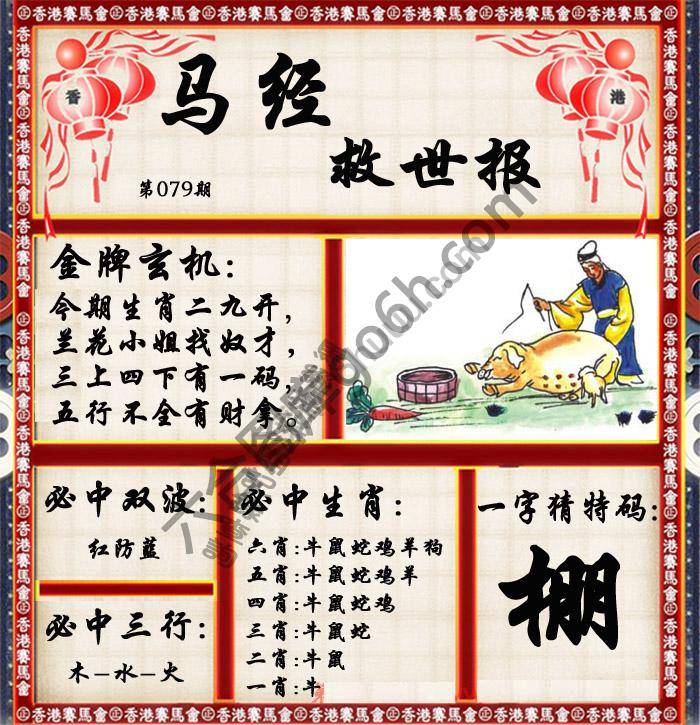 香港賽馬會
香 港
马经
救世报
第079期
金牌玄机:
今期生肖二九开,
兰花小姐找奴才,
三上四下有一码,
五行不全有财拿。
必中双波:
红防蓝
必中三行:
木-水-火
必中生肖:
六肖:牛鼠蛇鸡羊狗
五肖:牛鼠蛇鸡羊
四肖:牛鼠蛇鸡
三肖:牛鼠蛇
二肖:牛鼠
一肖:牛
一字猜特码:
掤